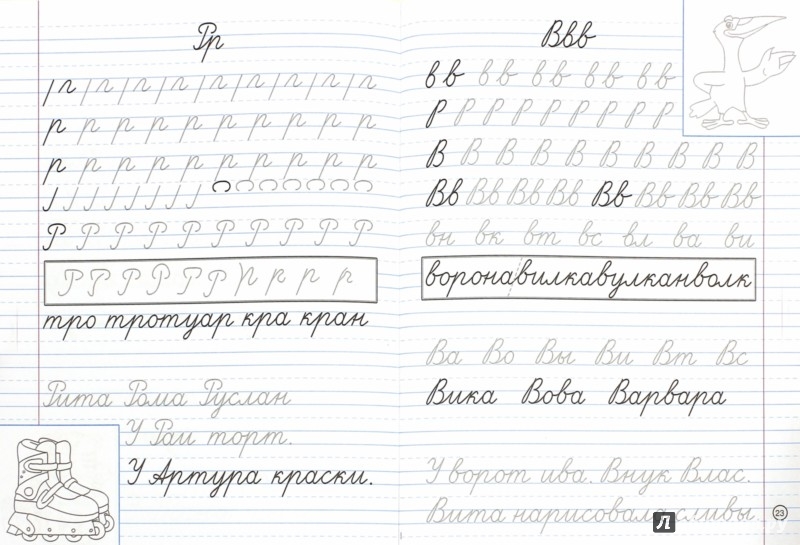 Рр
р р р р р р р р р р
р р р р р р р р р р
Р Р Р Р Р Р Р Р Р Р
Р Р Р Р Р Р р р р р
тро тротуар кра кран
Рита Рома Руслан
У Раи торт.
У Артура краски.
Ввв
вв вв вв вв вв
Р Р Р Р Р Р Р Р Р
В В В В В В В В В
Вв Вв Вв Вв Вв Вв Вв Вв
вн вк вт вс вл ва ви
воронавилкавулканволк
Ва Во Вы Ви Вт Вс
Вика Вова Варвара
У ворот ива. Внук Влас.
Вита нарисовала сливы.
23